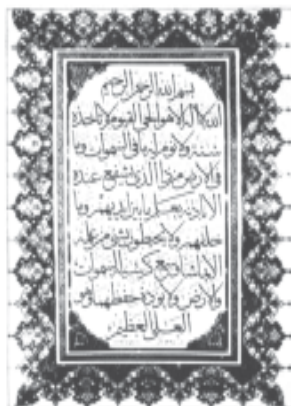 بسم الله الرحمن الرحيم
الله لا اله الا هو الحي القيوم لا تاخذه
سنة ولا نوم له ما في السموات وما
في الارض من ذا الذي يشفع عنده
الا باذنه يعلم ما بين ايديهم وما
خلفهم ولا يحيطون بشئ من علمه
الا بما شاء وسع كرسيه السموات
والارض ولا يوده حفظهما وهو
العلي العظيم